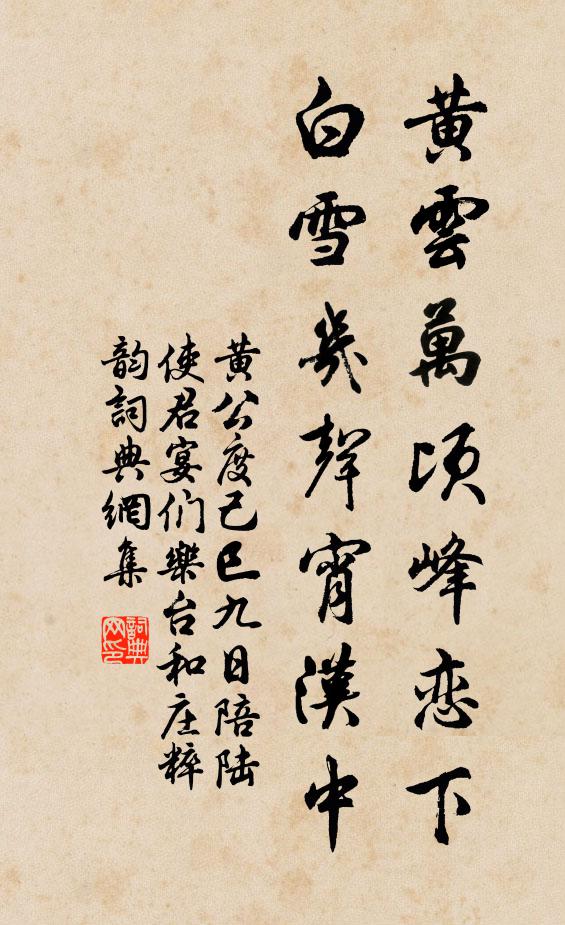 黄雲萬頃峰恋下
白雪幾聲宵漢中
黄公度己巳九日陪陆
使君宴们樂台和庄粹
韵詞典網集
詞典网印